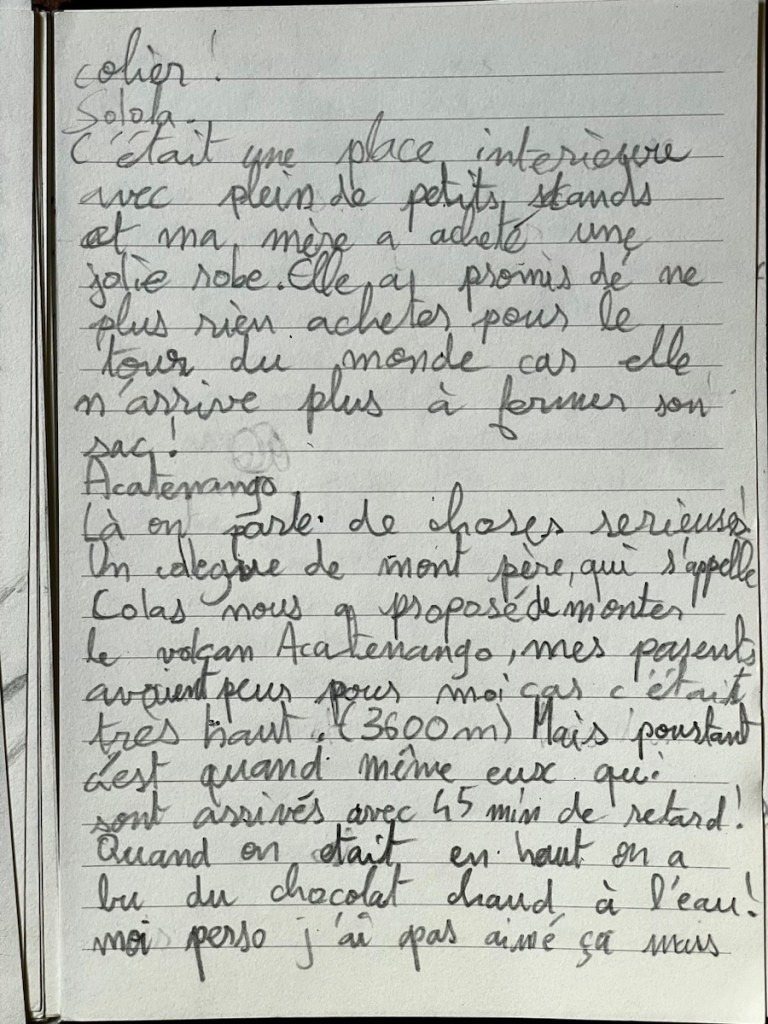 colier !
Solola.
C'était une place interieure
avec plein de petits stands
et ma mère a acheté une
jolie robe. Elle a promis de ne
plus rien acheter pour le
tour du monde car elle
n'arrive plus à fermer son
sac !
Acatenango
Là on parle de choses serieuses
Un colegue de mont père, qui s'appelle
Colas nous a proposé de monter
le volcan Acatenango, mes parents
avaient peur pour moi car c'était
très haut. (3600m) Mais pourtant
c'est quand même eux qui
sont arrivés avec 45 min de retard !
Quand on etait en haut on a
bu du chocolat chaud à l'eau !
moi perso j'ai pas aimé ça mais